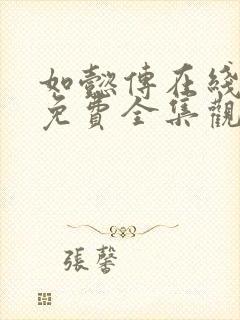 如懿傳在綫
免費全集觀
張馨